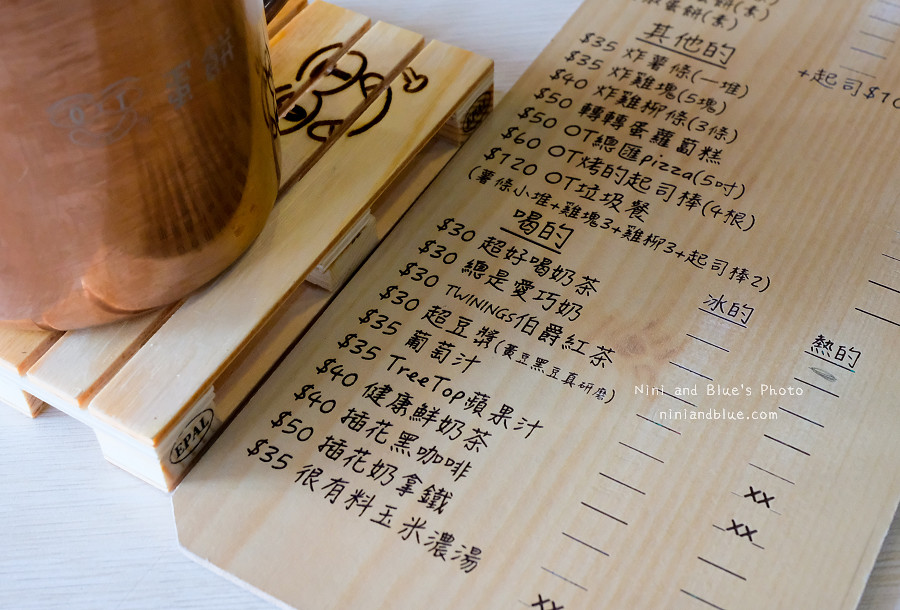 蛋餅(素)
蛋餅(素)
其他的
$35 炸薯條(一堆)
$35 炸雞塊(5塊)
$40 炸雞柳條(3條)
$50 轉轉蛋蘿蔔糕
$50 OT總匯pizza(5吋)
$60 OT烤的起司棒(4根)
$120 OT垃圾餐
(薯條小堆+雞塊3+雞柳3+起司棒2)
+起司$10
喝的
冰的
熱的
$30 超好喝奶茶
$30 總是愛巧奶
$30 TWININGS伯爵紅茶
$30 超豆漿(黃豆黑豆真研磨)
$35 葡萄汁
$35 TreeTop蘋果汁 xx
$40 健康鮮奶茶
$40 插花黑咖啡
$50 插花奶拿鐵
$35 很有料玉米濃湯 xx
xx
蛋餅
EPAL
Nini and Blue's Photo
niniandblue.com